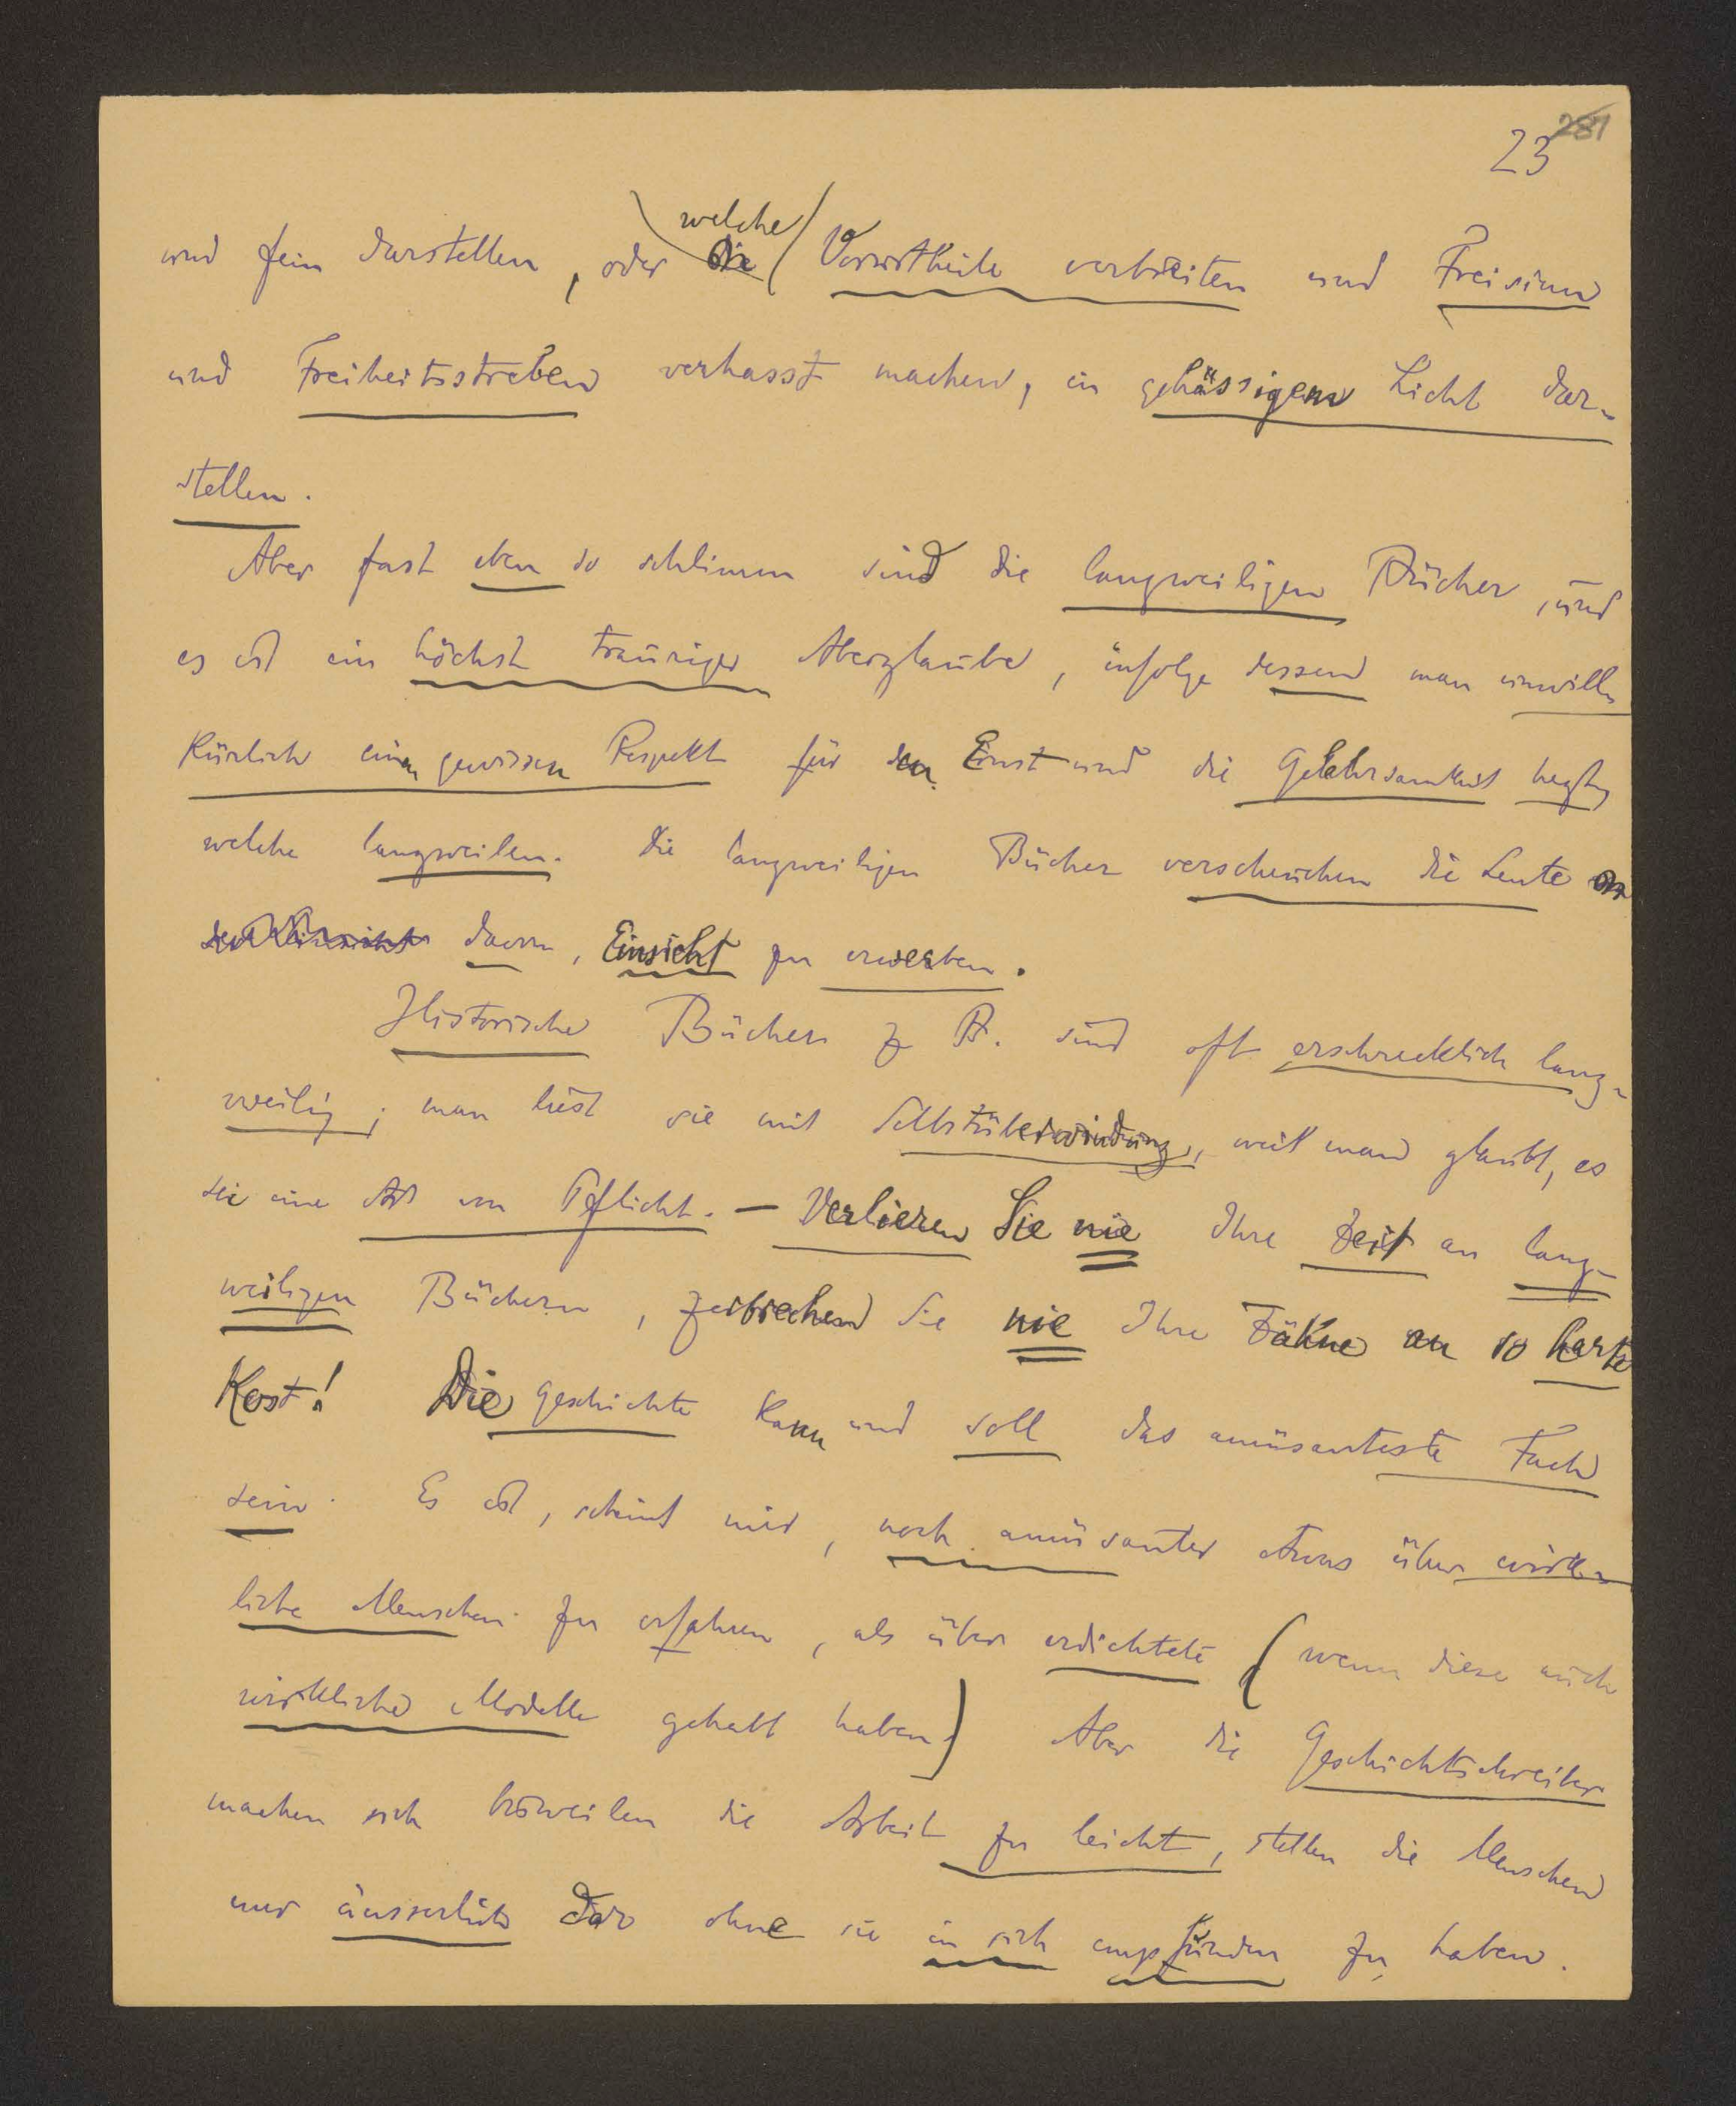 281
23
und fein darstellen, oder welche die Vorurtheile verbreiten und Freisinn
und Freiheitsstreben verhasst machen, in gehässigem Licht dar-
stellen.
Aber fast eben so schlimm sind die langweiligen Bücher, und
es ist ein höchst trauriger Aberglaube, infolge dessen man unwill-
kürlich einen gewissen Respekt für den Ernst und die Gelehrsamkeit hegt,
welche langweilen. Die langweiligen Bücher verscheuchen die Leute
davon, Einsicht zu erwerben.
Historische Bücher z B. sind oft erschrecklich lang-
weilig; man liest sie mit Selbstüberwindung, weil man glaubt, es
sei eine Art von Pflicht. — Verlieren Sie nie Ihre Zeit an lang-
weiligen Büchern, zerbrechen Sie nie Ihre Zähne an so harte
Kost! Die Geschichte kann und soll das amüsanteste Fach
sein. Es ist, scheint mir, noch amüsanter etwas über wirk-
liche Menschen zu erfahren, als über erdichtete (wenn diese auch
wirkliche Modelle gehabt haben) Aber die Geschichtschreiber
machen sich bisweilen die Arbeit zu leicht, stellen die Menschen
nur äusserlich dar ohne sie in sich empfunden zu haben.